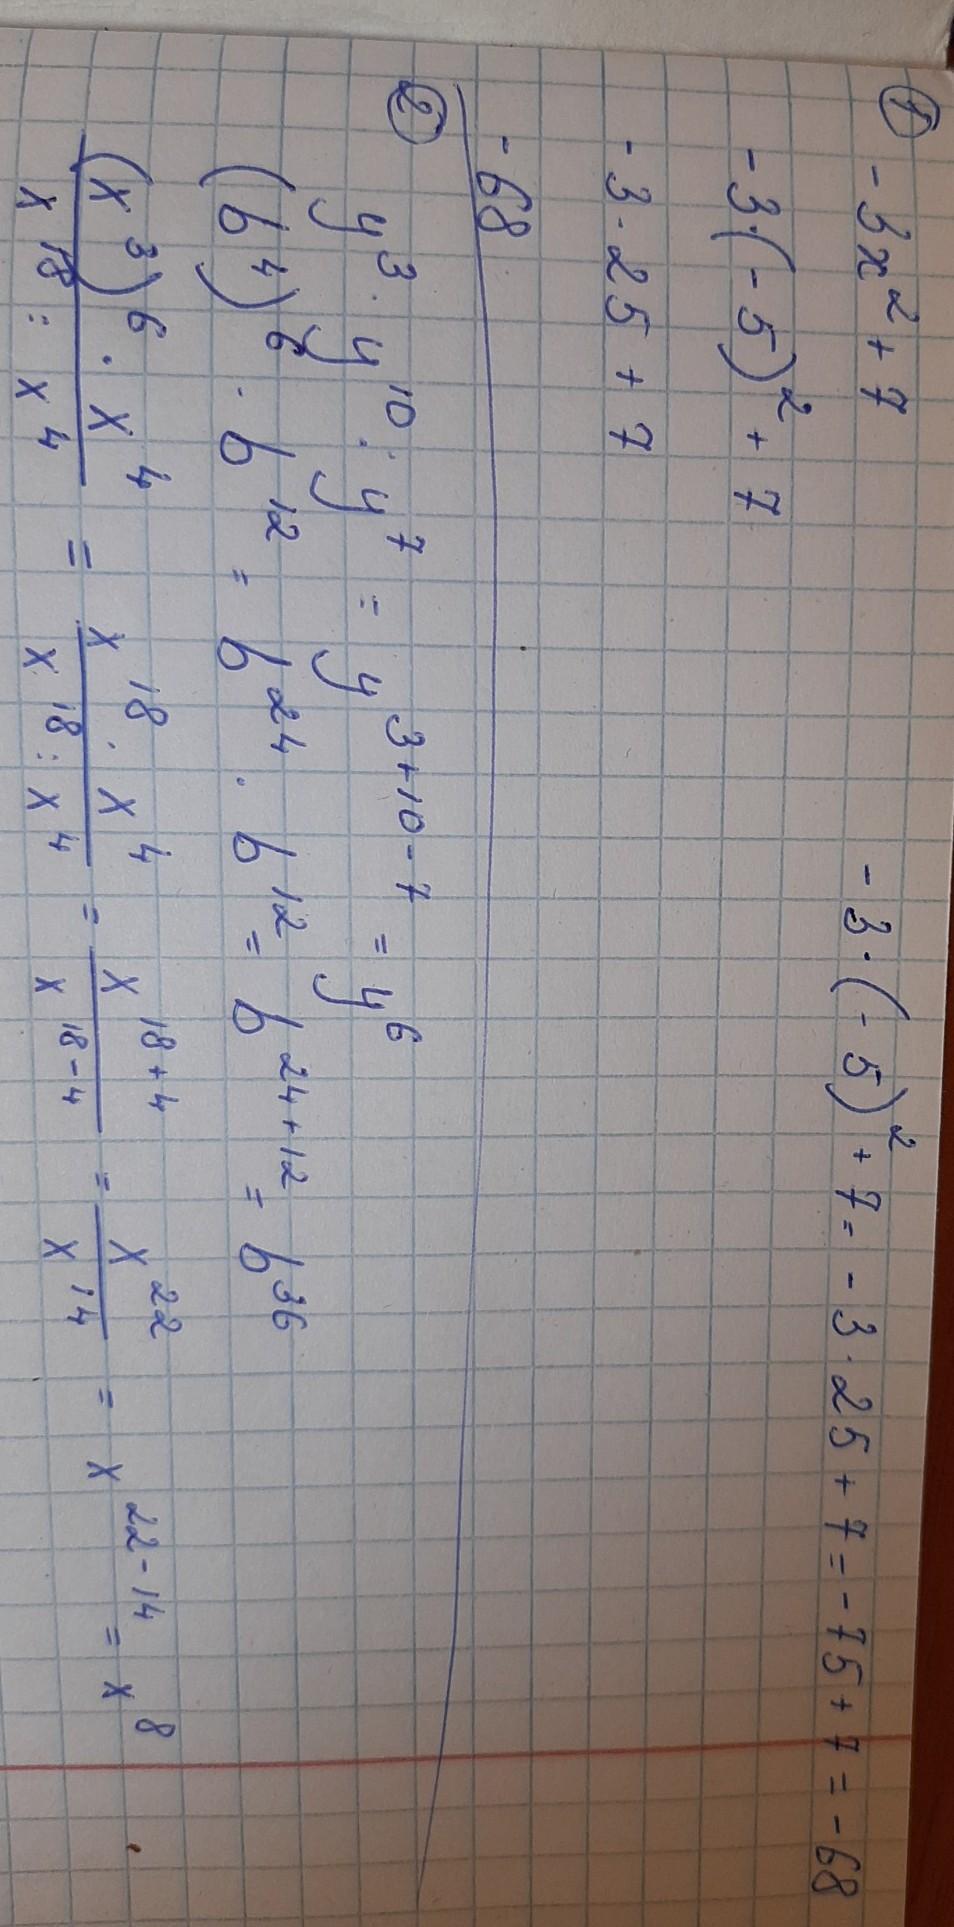 ① -3x² + 7
-3·(-5)² + 7 = -3·25 + 7 = -75 + 7 = -68
-3·(-5)² + 7
-3·25 + 7
-68
② y³ · y¹⁰ : y⁷ = y³⁺¹⁰⁻⁷ = y⁶
(b⁴)⁶ · b¹² = b²⁴ · b¹² = b²⁴⁺¹² = b³⁶
(x³)⁶ · x⁴ / x¹⁸ : x⁴ = x¹⁸ · x⁴ / x¹⁸ : x⁴ = x¹⁸⁺⁴ / x¹⁸⁻⁴ = x²² / x¹⁴ = x²²⁻¹⁴ = x⁸